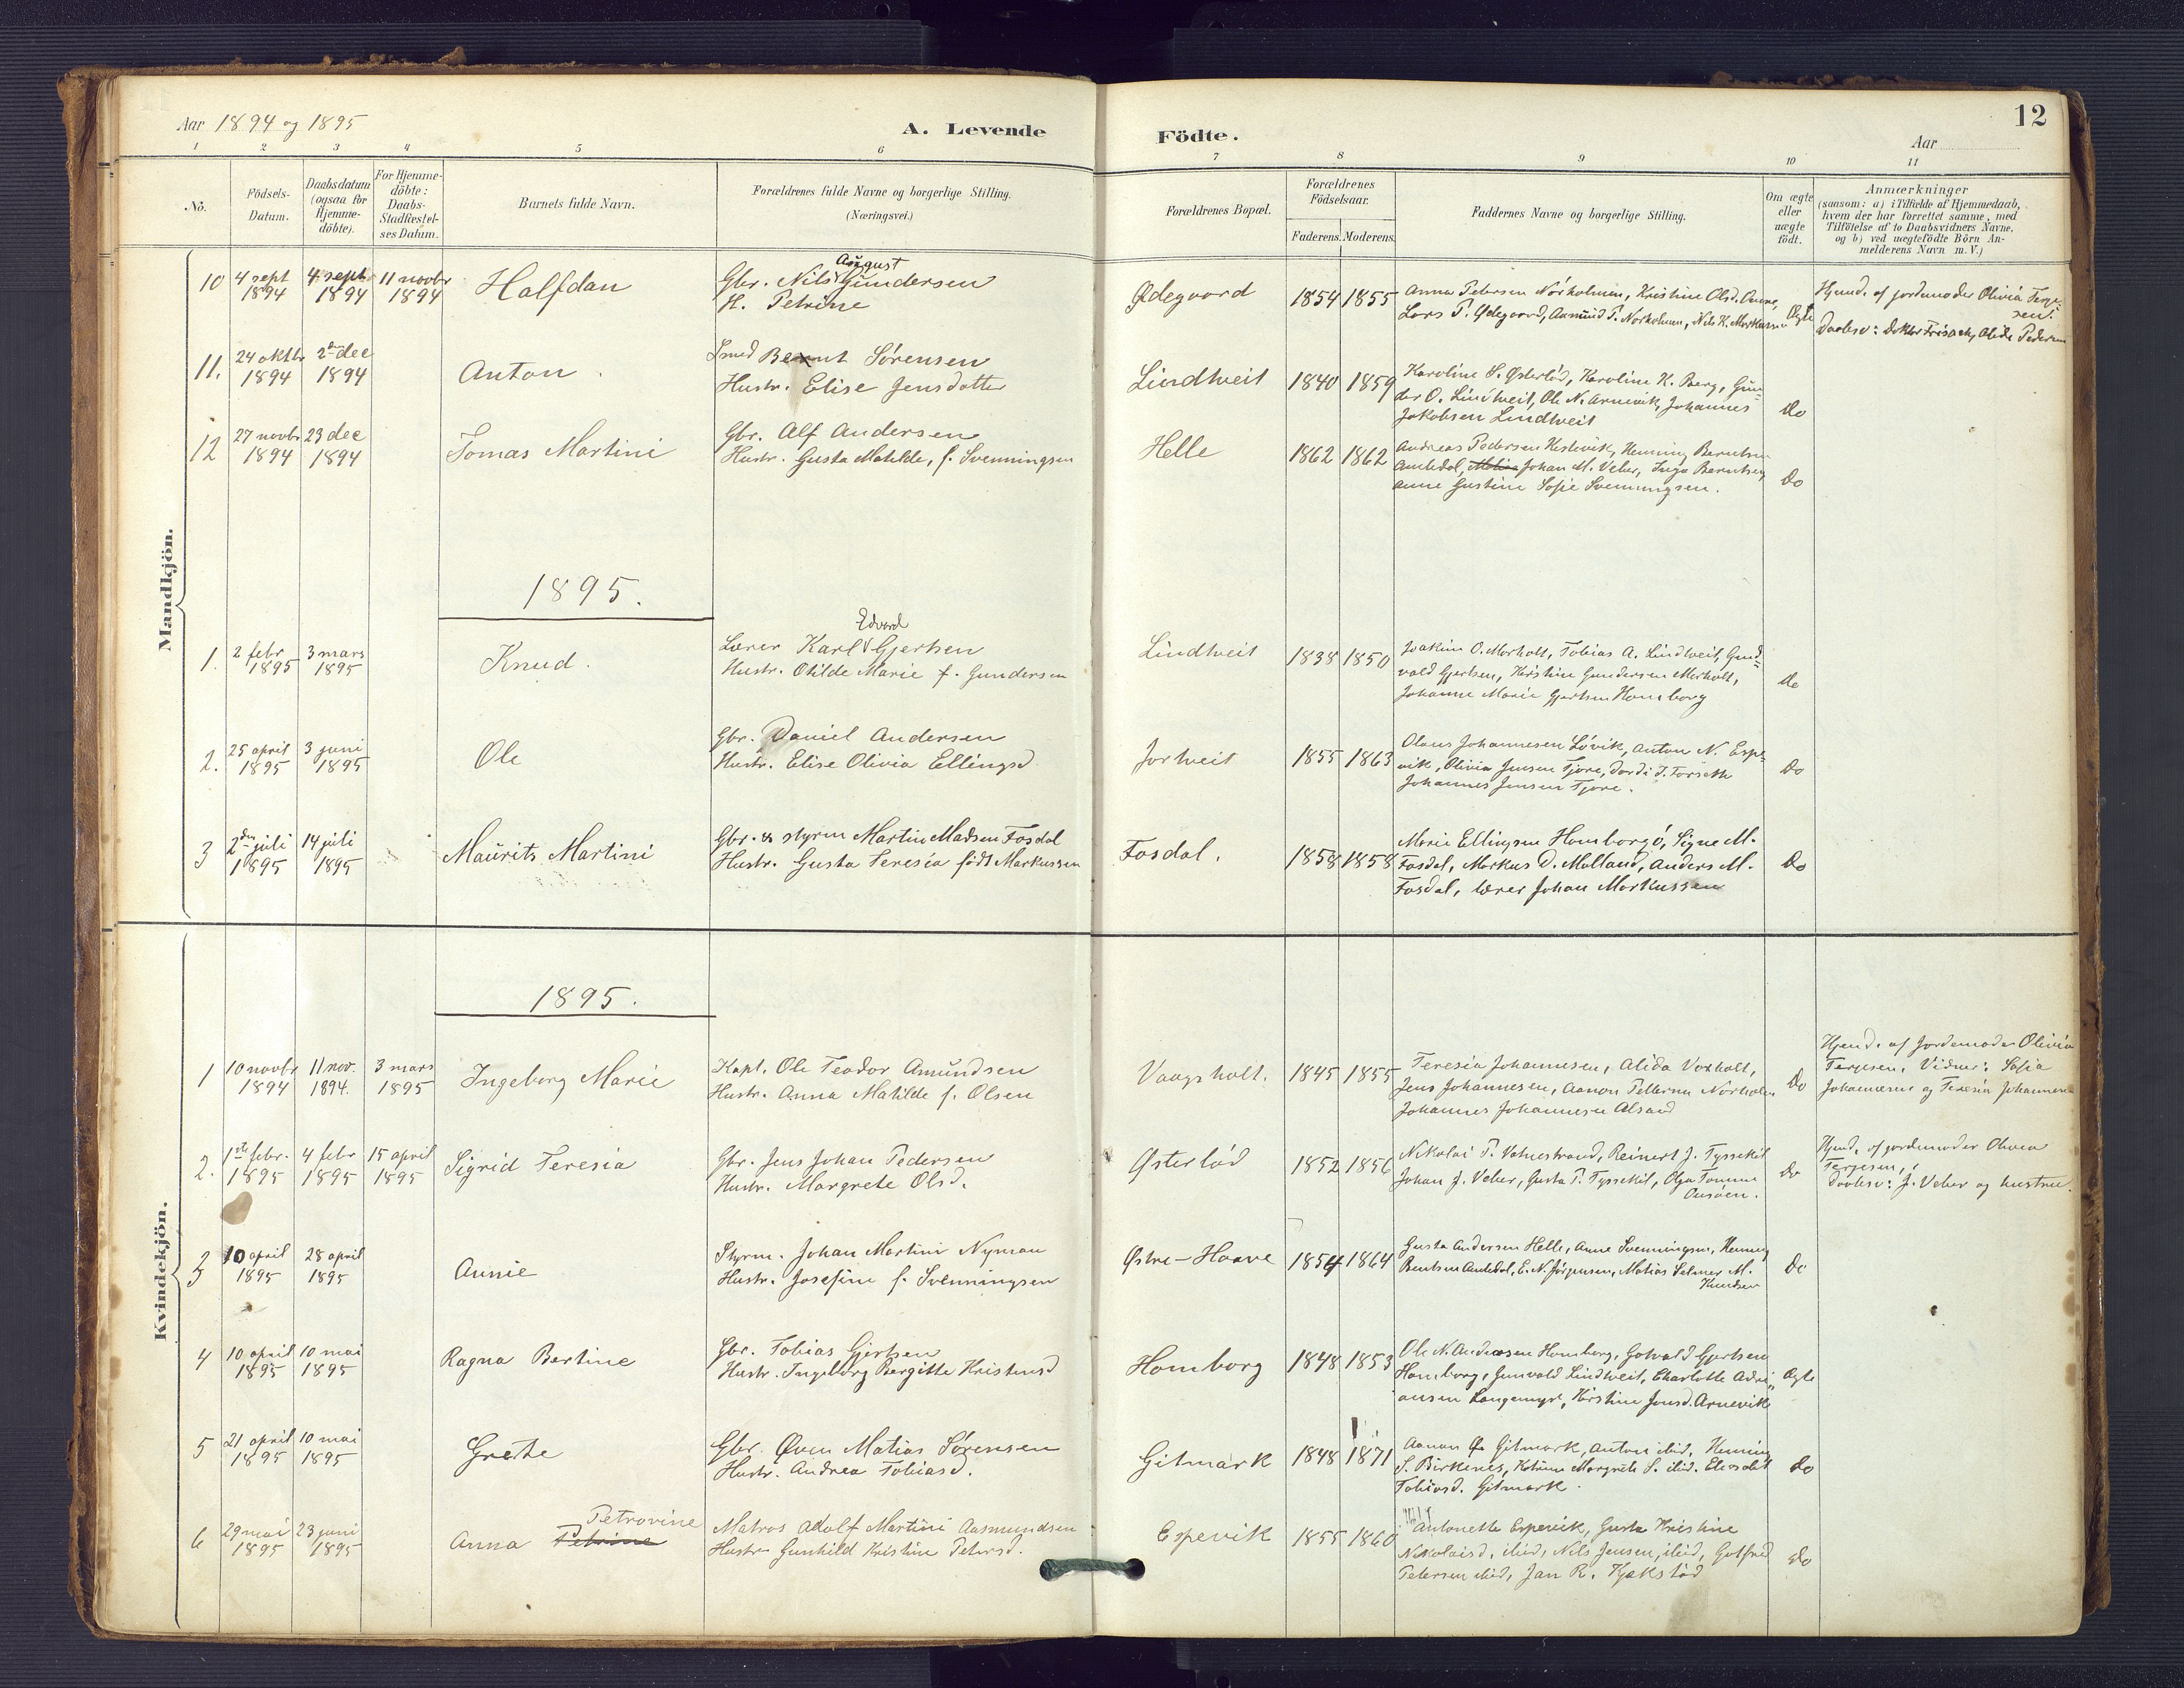 Aar 1894 og 1895
A. Levende
Födte.
Aar
12
1 2 3 4 5 6 7 8 9 10 11
No.
Födsels-Datum.
Daabsdatum (ogsaa for Hjemme-döbte).
For Hjemme-döbte: Daabs-Stadfæstel-ses Datum.
Barnets fulde Navn.
Forældrenes fulde Navne og borgerlige Stilling.
(Næringsvei.)
Forældrenes Bopæl.
Forældrenes Födselsaar.
Faderens. Moderens.
Faddernes Navne og borgerlige Stilling.
Om ægte eller uægte födt.
Anmærkninger
(saasom: a) i Tilfælde af Hjemmedaab,
hvem der har forrettet samme, med
Tilföielse af to Daabsvidners Navne,
og b) ved uægtefödte Börn An-
melderens Navn m. V.)
Mandkjön.
10 4 sept 1894 4 sept 1894 11 novbr 1894 Halfdan
Gbr. Nils August Gundersen
H. Petrine
Ødegaard 1854 1855
Anna Petersen Nørholmen, Kristine Olsd.
Lars P. Ødegaard, Aasmund P. Norholmen, Nils K. Markussen
Ægte
Hjmd. af jordemoder Olivia Terje-
sen.
Daabsv: Doktor Frisach, Alida Pedersen
11. 24 oktbr 1894 2den dec 1894 Anton.
Smed Bernt Sørensen
Hustr. Elise Jensdatter
Lindtveit 1840 1859
Karoline S. Østerlød, Karoline K. Berg, Gun-
der O. Lindtveit, Ole N. Arnevik, Johannes
Jakobsen Lindtveit
Do
12 27 novbr 1894 23 dec 1894 Tomas Martini
Gbr. Alf Andersen
Hustr. Gusta Matilde, f. Svenningsen
Helle 1862 1862
Andreas Pedersen Kestevik, Henning Berntsen
Amledal, Johan M. Veber, Inga Berntsen,
Anne Gustine Sofie Svenningsen.
Do
1895.
1. 2 febr 1895 3 mars 1895 Knud.
Lærer Karl Edvard Gjertsen
Hustr. Otilde Marie f. Gundersen
Lindtveit 1838 1850
Joakim O. Morholt, Tobias A. Lindtveit, Gund-
vald Gjertsen, Kirstine Gundersen Morholt,
Johanne Marie Gjertsen Homborg
do
2. 25 april 1895 3 juni 1895 Ole
Gbr. Daniel Andersen
Hustr. Elise Olivia Ellingsd.
Jortveit 1855 1863
Olaus Johannesen Løvik, Anton N. Espe-
vik, Olivia Jensen Fjore, Dordi T.
Johannes Jensen Fjore.
Do
3 2den juli 1895 14 juli 1895 Maurits Martini
Gbr. & styrm Martin Madsen Fosdal
Hustr. Gusta Teresia født Markussen
Fosdal. 1858 1858
Marie Ellingsen Homborgø, Signe M.
Fosdal, Markus D. Molland, Anders M.
Fosdal, lærer Johan Markussen
Do
Kvindekjön.
1895.
1 10 novbr 1894 11 nov. 1894. 3 mars 1895 Ingeborg Marie
Kapt. Ole Teodor Amundsen
Hustr. Anna Matilde f. Olsen
Vaagsholt. 1845 1855
Teresia Johannesen, Alida Voxholt,
Jens Johannesen, Aanon Pettersen Norholm
Johannes Johannesen Alsand
Do
Hjemd. af Jordemoder Olivia
Terjesen, Vidner: Sofia
Johannesen og Teresia Johannesen
2. 1ste febr. 1895 4 febr 1895 15 april 1895 Sigrid Teresia
Gbr. Jens Johan Pedersen
Hustr. Margrete Olsd.
Østerlød 1852 1856
Nikolai P. Valnestrand, Reinert J. Tyssekil
Johan J. Veber, Gusta T. Tyssekil, Olga
Do
Hjmd. af jordemoder Olivia
Terjesen,
Daabsv: J. Veber og hustru.
3 10 april 1895 28 april 1895 Annie
Styrm. Johan Martini Nyman
Hustr. Josefine f. Svenningsen
Østre-Haave 1854 1864
Gusta Andersen Helle, Anne Svenningsen, Henning
Bentsen Amledal, E. N. Jørgensen, Matias Selmer M.
Knudsen
Do
4 10 april 1895 10 mai 1895 Ragna Bertine
Gbr. Tobias Gjertsen
Hustr. Ingeborg Bergitte Kristensd
Homborg 1848 1853
Ole N. Andreasen Homborg, Gotvald Gjertsen
Homborg, Gunvald Lindtveit, Charlotte Adri-
ansen Langemyr, Kirstine Jensd. Arnevik
Ægte
5 21 april 1895 10 mai 1895 Grethe
Gbr. Øven Matias Sørensen
Hustr. Andrea Tobiasd.
Gitmark 1848 1871
Aanon Ø. Gitmark, Anton ibid, Henning
S. Birkenes, Katrine Margrete S. ibid. Elesabet
Tobiasd. Gitmark.
do
6 29 mai 1895 23 juni 1895 Anna Petrine Petrovine
Matros Adolf Martini Aasmundsen
Hustr Gunhild Kristine Petersd.
Espevik 1855 1860
Antonette Espevik, Gusta Kristine
Nikolaisd, ibid, Nils Jensen, ibid, Gotfred
Petersen ibid, Jan R. Kjekstad
do